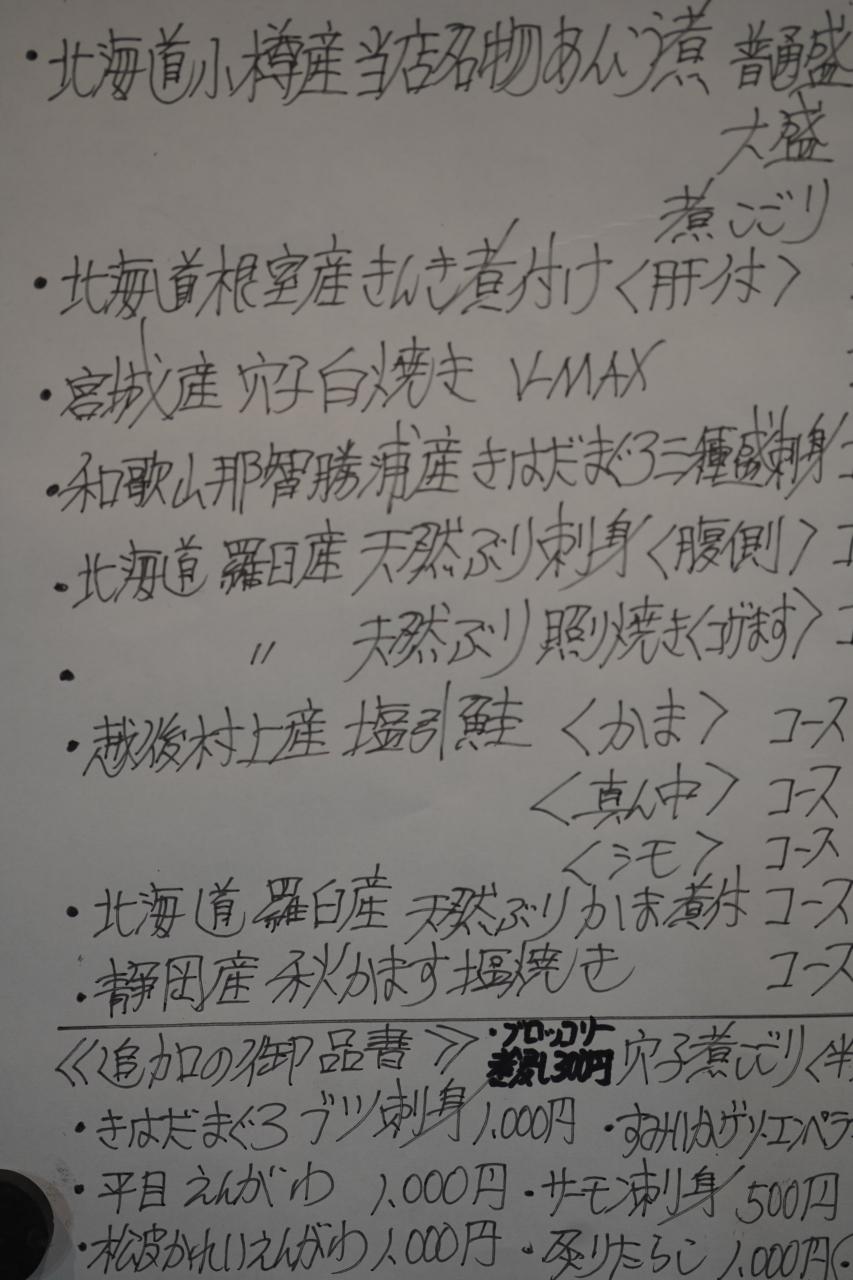 ・北海道小樽産当店名物あんこう煮 普通盛
大盛
煮こごり
・北海道根室産きんき煮付け〈肝付〉
・宮城産 穴子白焼き V-MAX
・和歌山那智勝浦産 きはだまぐろ三種盛刺身
・北海道 羅臼産 天然ぶり刺身〈腹側〉コ
・ 〃 天然ぶり 照り焼き〈コゲます〉コ
・越後村上産 塩引鮭 〈かま〉 コース
〈真ん中〉 コース
〈シモ〉 コース
・北海道 羅臼産 天然ぶりかま煮付 コース
・静岡産 秋かます塩焼き コース
≪追加の御品書≫ ・ブロッコリー 300円 穴子煮こごり〈半
・きはだまぐろ ブツ刺身 1,000円 ・すみいかゲソ・エンペラ
・平目 えんがわ 1,000円 ・サーモン刺身 500円
・松皮かれいえんがわ 1,000円 ・炙りたらこ 1,000円(・